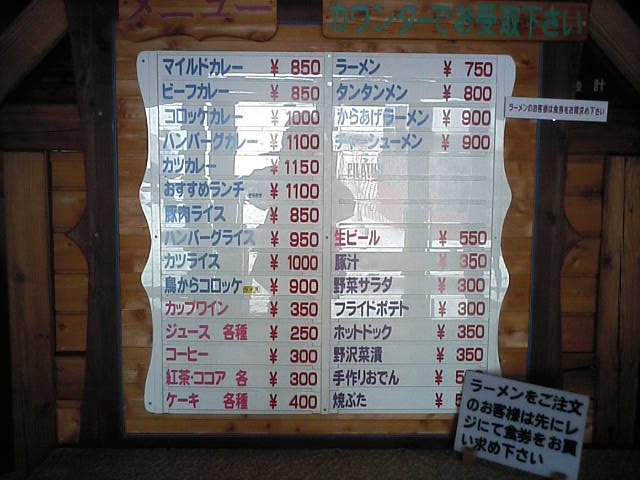 メニュー
カウンターでお受取下さい
マイルドカレー ¥ 850
ビーフカレー ¥ 850
コロッケカレー ¥ 1000
ハンバーグカレー ¥ 1100
カツカレー ¥ 1150
おすすめランチ ¥ 1100
豚肉ライス ¥ 850
ハンバーグライス ¥ 950
カツライス ¥ 1000
鳥からコロッケ ¥ 900
カップワイン ¥ 350
ジュース 各種 ¥ 250
コーヒー ¥ 300
紅茶・ココア 各 ¥ 300
ケーキ 各種 ¥ 400
ラーメン ¥ 750
タンタンメン ¥ 800
からあげラーメン ¥ 900
チャーシューメン ¥ 900
生ビール ¥ 550
豚汁 ¥ 350
野菜サラダ ¥ 300
フライドポテト ¥ 300
ホットドック ¥ 350
野沢菜漬 ¥ 350
手作りおでん ¥ 5
焼ぶた ¥ 5
会計
ラーメンのお客様は食券をお買求め下さい
ラーメンをご注文
のお客様は先にレ
ジにて食券をお買
い求め下さい